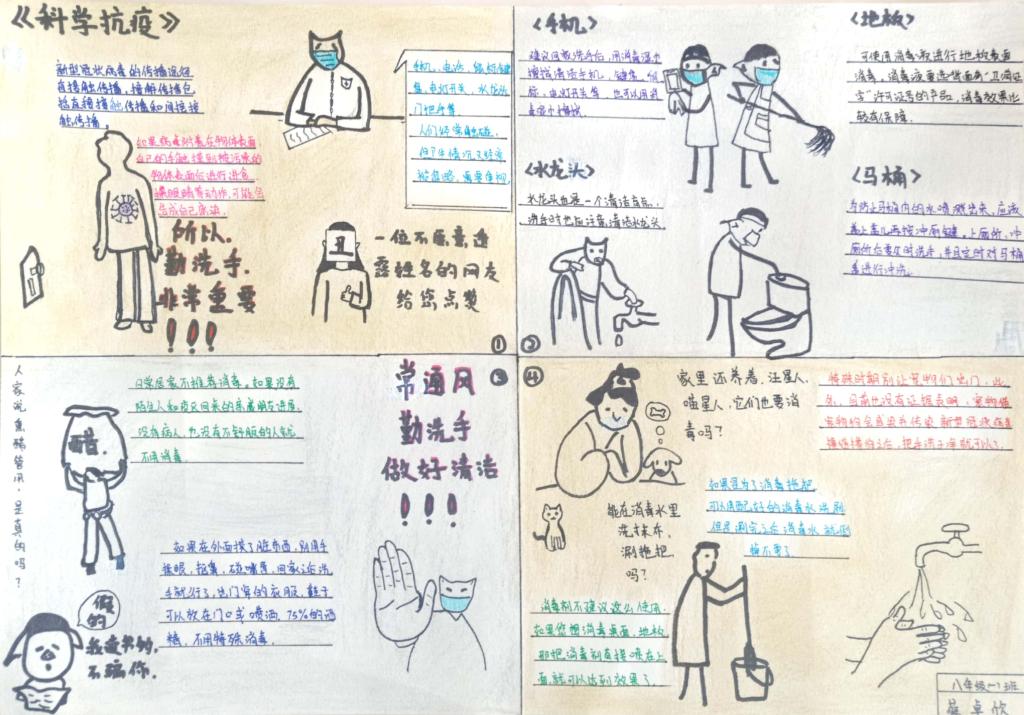 《科学抗疫》
新型冠状病毒的传播途径
直接触传播，接触传播包
括直接接触传播和间接接
触传播。
如果病毒附着在物体表面
自己的手触摸到被污染的
物体表面后进行进食
揉眼睛等动作，可能会
造成自己感染
所以，
勤洗手，
非常重要
！！！
手机，电话，键
盘，电灯开关，水龙头
门把手等
人们经常触碰，
被忽略，需要重视
丑
一位不愿意透
露姓名的网友
给您点赞
①
《手机》
擦拭清洁手机，键盘，鼠
标，电灯开关等，也可以用消
《地板》
可使用消毒液进行地板表面
消毒，消毒液要选背面有“卫消证
字”许可证号的产品，消毒效果比
较有保障。
《水龙头》
水龙头也是一个清洁盲区，
洗手时也应注意清洁水龙头
《马桶》
为防止马桶内的水喷溅出来，应该
盖上盖儿再按冲厕键。上厕所，冲
厕所后要及时洗手，并且定时对马桶
盖进行冲洗。
②
人家说熏醋管用，是真的吗？
醋
日常居家不推荐消毒。如果没有
陌生人和疫区回来的亲戚朋友进屋，
没有病人，也没有不舒服的人就
不用消毒
③
常通风
勤洗手
做好清洁
！！！
如果在外面摸了脏东西，别用手
揉眼，抠鼻，碰嘴唇，回家之后洗
手就行了，出门穿的衣服，鞋子
可以放在门口或喷洒75%的酒
精，不用特殊消毒
假的
我读书的，
不骗你。
④
家里还养着，汪星人，
喵星人，它们也要消
毒吗？
特殊时期别让宠物们出门，此
外，目前也没有证据表明，宠物猫
宠物狗会感染并传染新型冠状病毒
接触猫狗之后，把手洗干净就可以了。
能在消毒水里
洗抹布，
涮拖把
吗？
如果是为了消毒拖把
可以用配好的消毒水洗刷
但是涮完之后消毒水就倒
掉不要了
消毒剂不建议这么使用
如果您想消毒桌面，地板，
那把消毒剂直接喷在上
面，就可以达到效果了。
八年级一班
卓欣